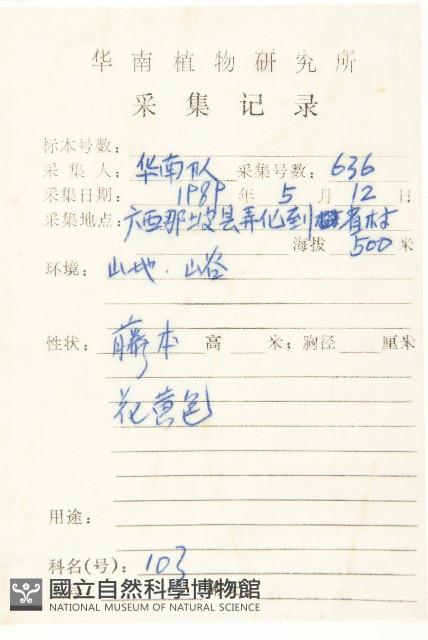 华南植物研究所
采集记录
标本号数:
采集人: 华南队 采集号数: 636
采集日期: 1989 年 5 月 12 日
采集地点: 广西那坡县弄化到 省村
海拔 500 米
环境: 山地.山谷
性状: 藤本 高 米; 胸径 厘米
花黄色
用途:
科名(号): 103
國立自然科學博物館
NATIONAL MUSEUM OF NATURAL SCIENCE